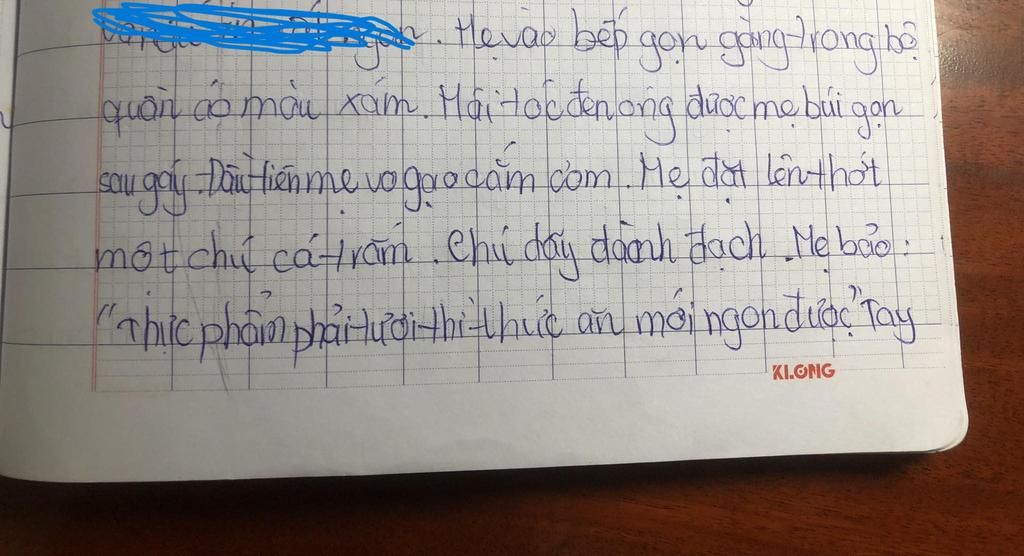 . Mẹ vào bếp gọn gàng trong bộ
quần áo màu xám. Mái tóc đen óng được mẹ búi gọn
sau gáy. Đầu tiên mẹ vo gạo cắm cơm. Mẹ đặt lên thớt
một chú cá trắm. Chú dãy dành đạch. Mẹ bảo:
"Thực phẩm phải tươi thì thức ăn mới ngon được" Tay
KLONG